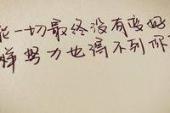 一切最终没有变好
样努力也得不到你